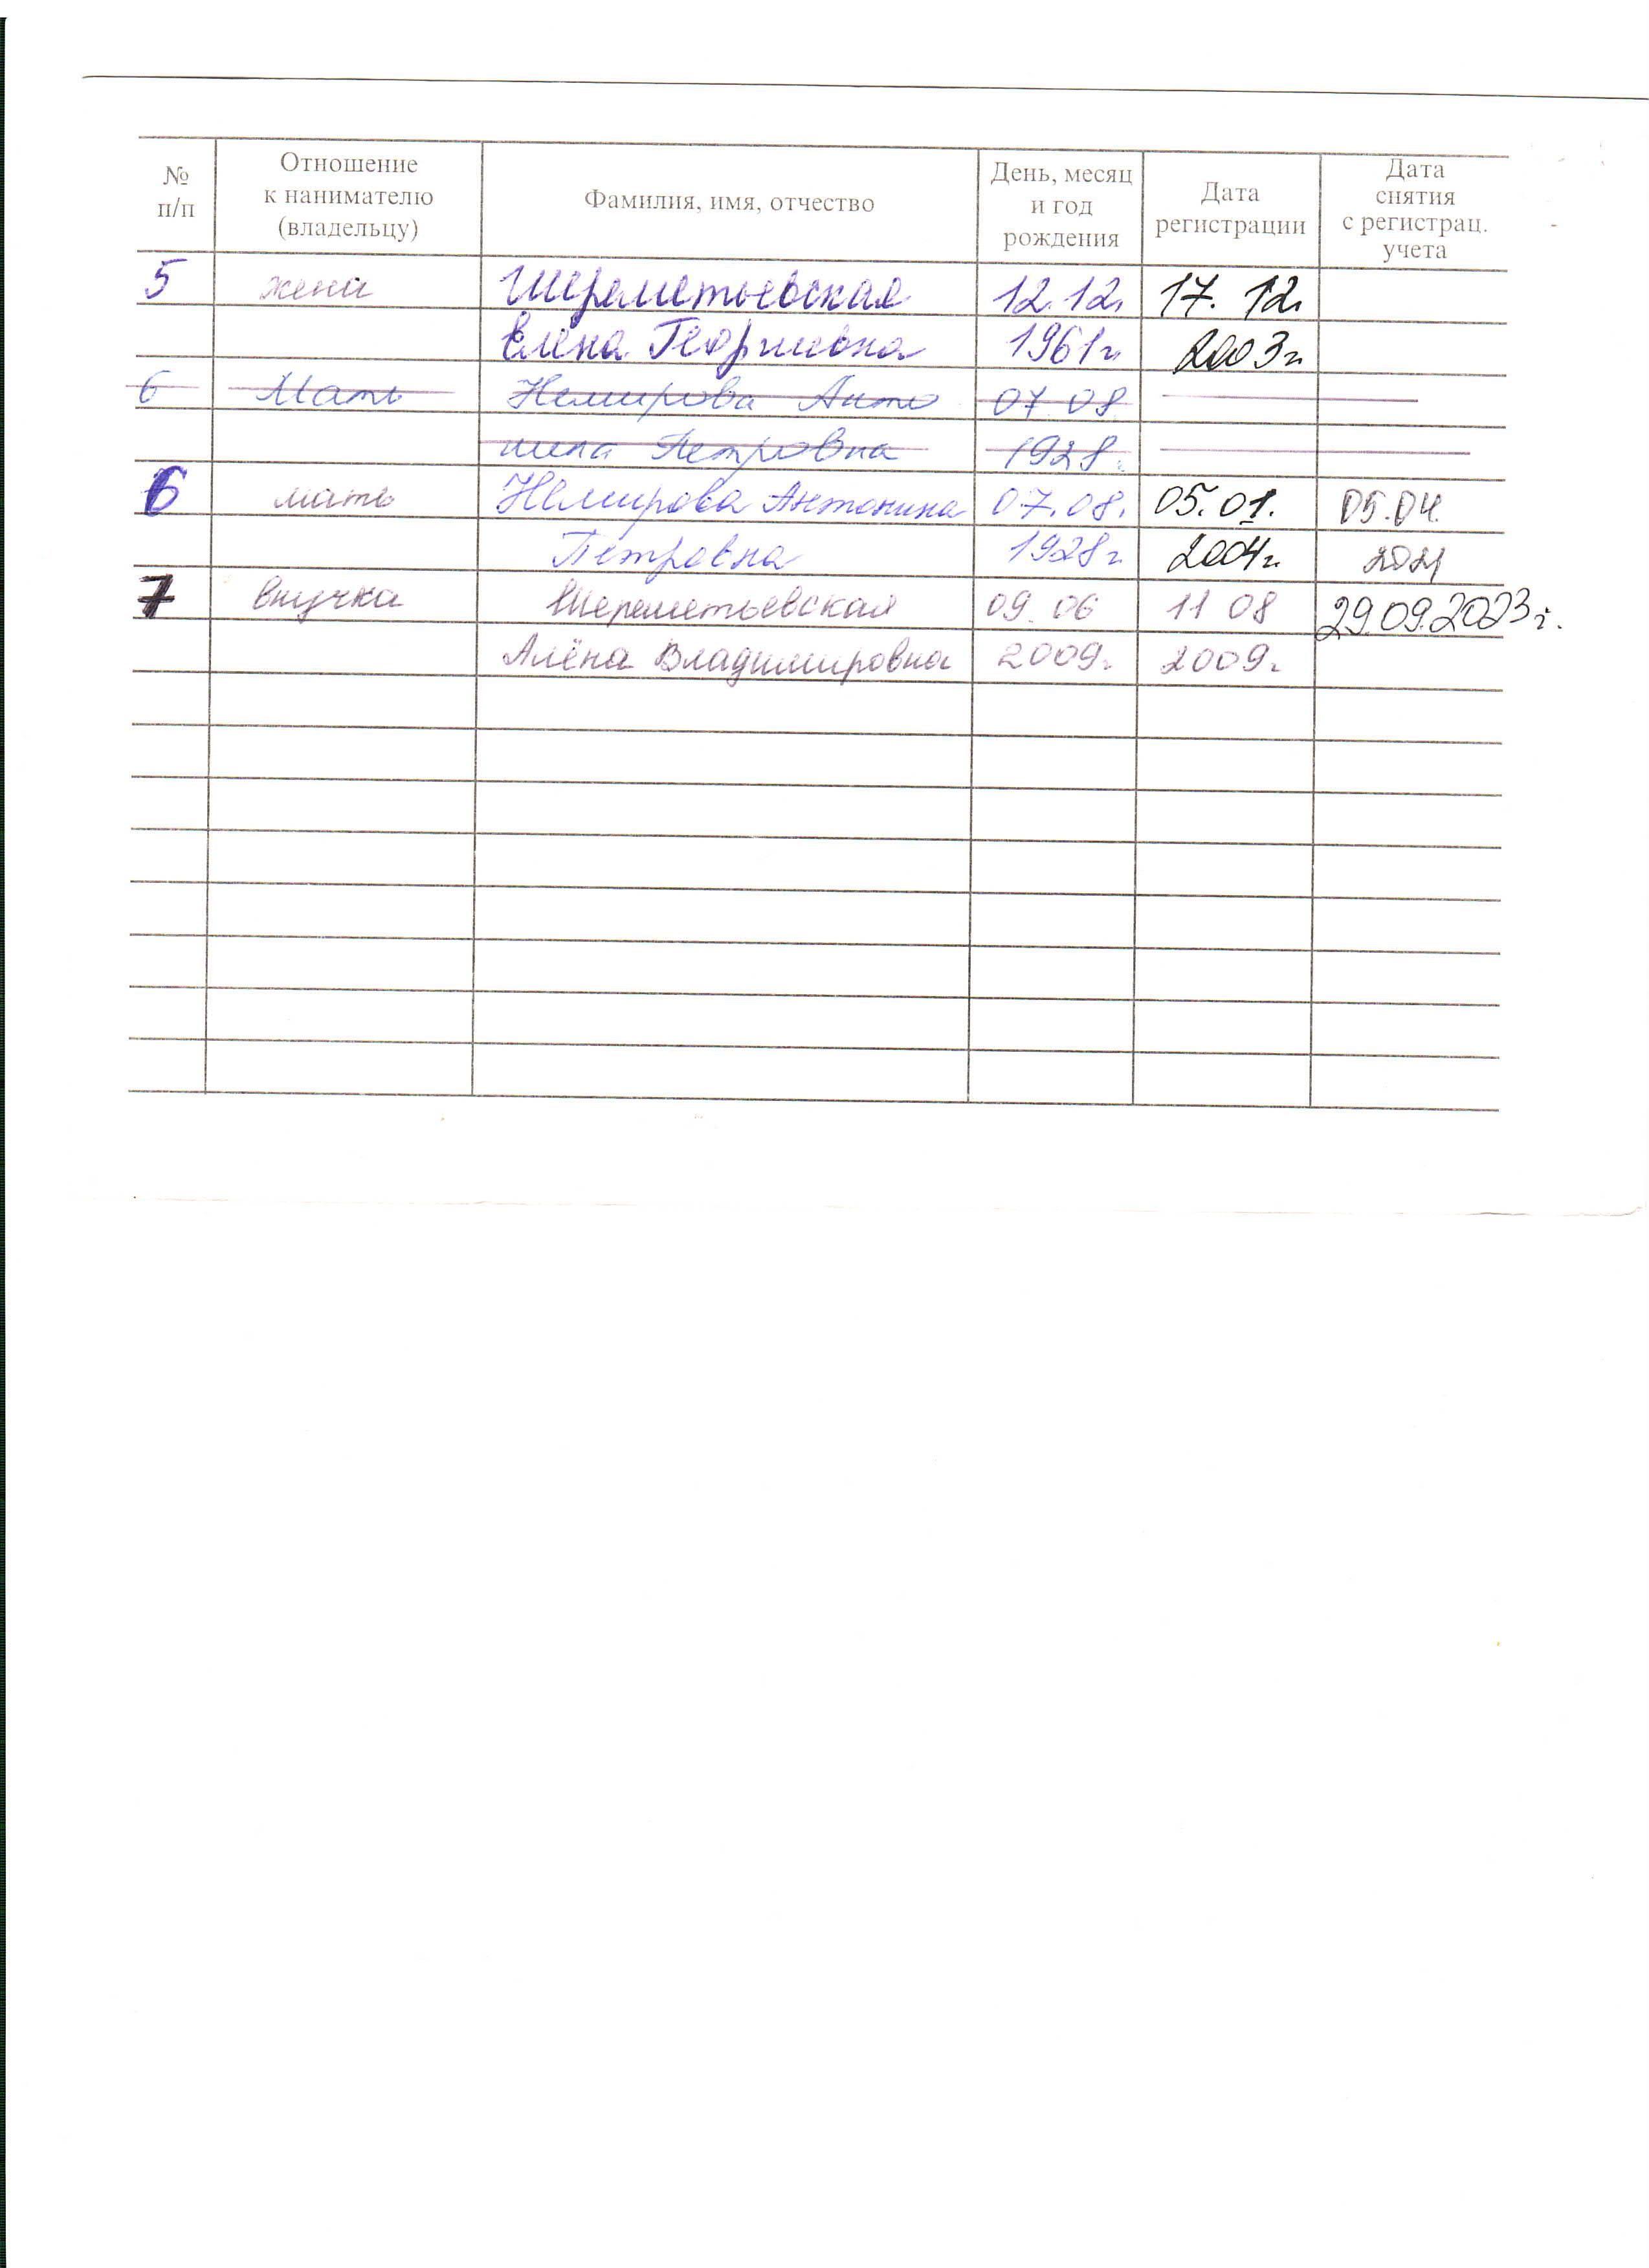 № п/п Отношение к нанимателю (владельцу) Фамилия, имя, отчество День, месяц и год рождения Дата регистрации Дата снятия с регистрац. учета
5 жена Шереметьевская 12.12. 17. 12.
Елена Георгиевна 1961г. 2003г.
6 Мать Немирова Анто 07 08
нина Петровна 1928.
6 мать Немирова Антонина 07.08. 05.01. 05.04.
Петровна 1928г. 2004г. 2021
7 внучка Шереметьевская 09 06 11 08 29.09.2023г.
Алёна Владимировна 2009г. 2009г.